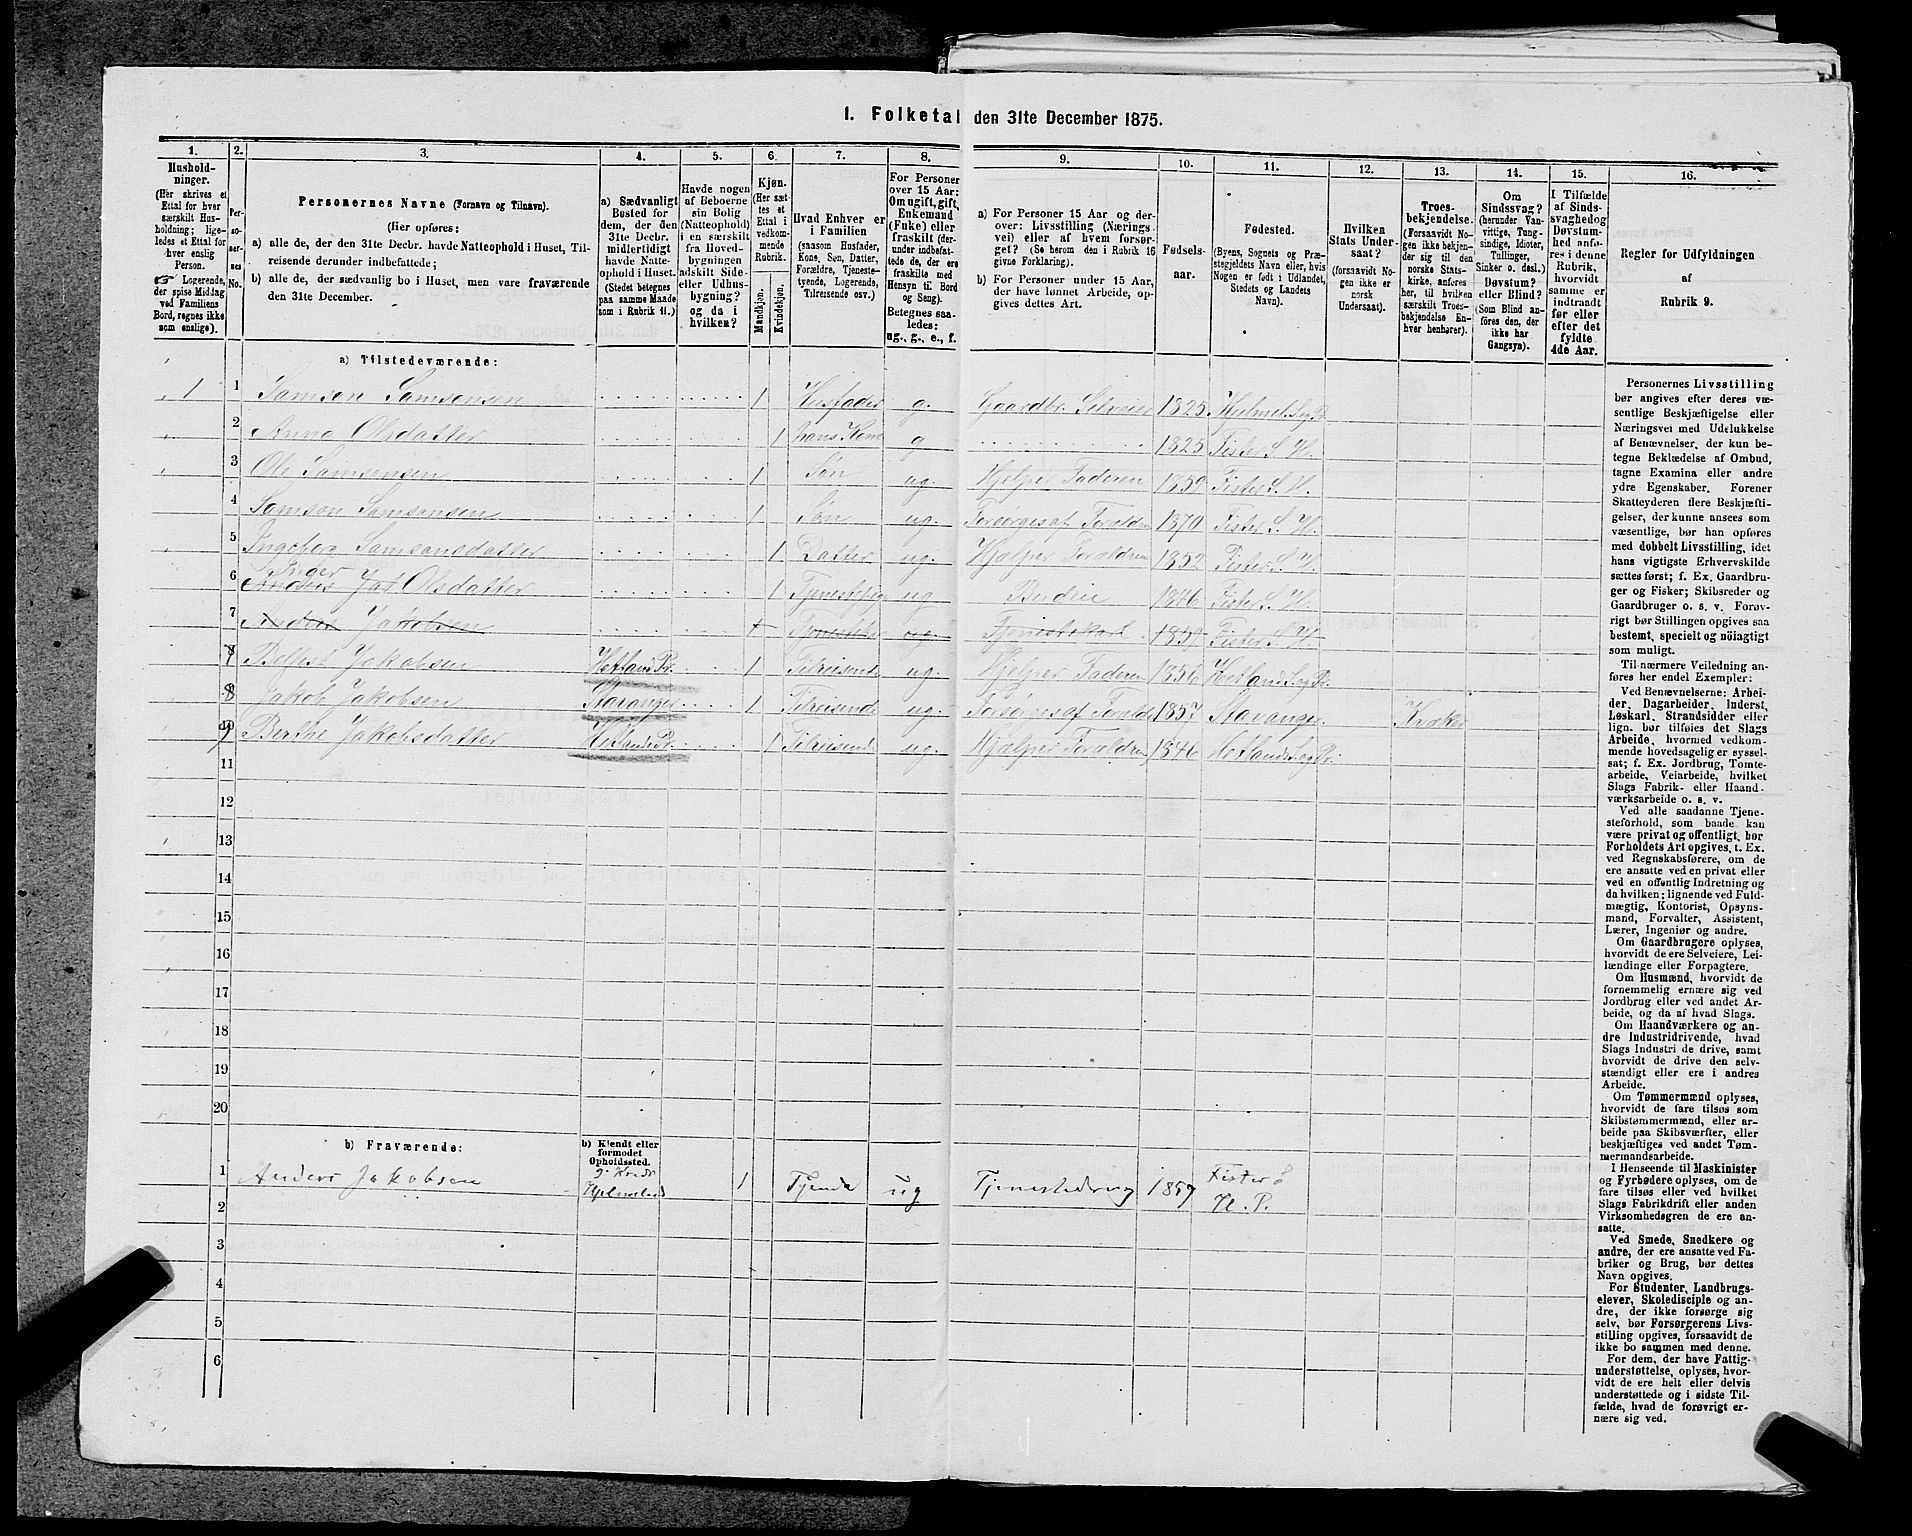 1. Folketal den 31te December 1875.
1. 2. 3. 4. 5. 6. 7. 8. 9. 10. 11. 12. 13. 14. 15. 16.
Hushold-
ninger.
(Her skrives et
Ettal for hver
særskilt Hus-
holdning; lige-
ledes et Ettal for
hver enslig
Person.
☞ Logerende,
der spise Middag
ved Familiens
Bord, regnes ikke
som enslige).
Per-
so-
ner-
nes
No.
Personernes Navne (Fornavn og Tilnavn).
(Her opføres:
a) alle de, der den 31te Decbr. havde Natteophold i Huset, Til-
reisende derunder indbefattede;
b) alle de, der sædvanlig bo i Huset, men vare fraværende
den 31te December.
a) Sædvanligt
Bosted for
dem, der den
31te Decbr.
midlertidigt
havde Natte-
ophold i Huset.
(Stedet betegnes
paa samme Maade
som i Rubrik 11.)
Havde nogen
af Beboerne
sin Bolig
(Natteophold)
i en særskilt
fra Hoved-
bygningen
adskilt Side-
eller Udhus-
bygning?
og da i
hvilken?
Kjøn.
(Her sæt-
tes et
Ettal i
vedkom-
mende
Rubrik.
Mandkjøn.
Kvindekjøn.
Hvad Enhver er
i Familien
(saasom Husfader,
Kone, Søn, Datter,
Forældre, Tjeneste-
tyende, Logerende,
Tilreisende osv.)
For Personer
over 15 Aar:
Om ugift, gift,
Enkemand
(Fuke) eller
fraskilt (der-
under indbefat-
tede de, der ere
fraskilte med
Hensyn til Bord
og Seng).
Betegnes saa-
ledes:
ug., g., e., f.
a) For Personer 15 Aar og der-
over: Livsstilling (Nærings-
vei) eller af hvem forsør-
get? (Se herom den i Rubrik 16
givne Forklaring).
b) For Personer under 15 Aar,
der have lønnet Arbeide, op-
gives dettes Art.
Fødsels-
aar.
Fødested.
(Byens, Sognets og Præ-
stegjeldets Navn eller, hvis
Nogen er født i Udlandet,
Stedets og Landets
Navn).
Hvilken
Stats Under-
saat?
(forsaavidt No-
gen ikke er
norsk
Undersaat).
Troes-
bekjendelse.
(Forsaavidt No-
gen ikke bekjen-
der sig til den
norske Stats-
kirke, anføres
her, til hvilken
særskilt Troes-
bekjendelse En-
hver henhører).
Om
Sindssvag?
(herunder Van-
vittige, Tung-
sindige, Idioter,
Tullinger,
Sinker o. desl.)
Døvstum?
eller Blind?
(Som Blind an-
føres den, der
ikke har
Gangsyn).
I Tilfælde
af Sinds-
svaghed og
Døvstum-
hed anfø-
res i denne
Rubrik,
hvorvidt
samme er
indtraadt
før eller
efter det
fyldte
4de Aar.
Regler for Udfyldningen
af
Rubrik 9.
a) Tilstedeværende:
1 1 Samson Samsonsen 1 Husfader g. Gaardbr. Selveier 1825 Hjelmel. Sog Pr.
2 Anna Olsdatter 1 hans Kone g 1825 Fister S. H.
3 Ole Samsonsen 1 Søn ug. Hjelper Faderen 1859 Fister S. H.
4 Samson Samsonsen 1 Søn ug. Forsørges af Foraldre 1870 Fister S. H.
5 Ingeborg Samsonsdatter 1 Datter ug. Hjælper Foraldrene 1852 Fister S. H.
Inger
6 Olsdatter 1 Tjenestepige ug Budeie 1846 Fister S. H.
7 Anders Jakobsen 1 ug. Tjenestekarl 1859 Fister S. H.
8 Jakobsen Hetland Pr. 1 Tilreisende ug. Hjelper Faderen 1856 Hetland Sog Pr.
Jakob Jakobsen Stavanger 1 Tilreisende ug. Forsørges af Forald 1857 Stavanger Kvæker
10 Berthe Jakobsdatter Hetlands Pr. 1 Tilreisende ug. Hjælper Foraldren 1846 Hetlands Sog Pr.
11
12
13
14
15
16
17
18
19
20
b) Fraværende:
b) Kjendt eller
formodet
Opholdssted.
1 Anders Jakobsen Hjelmeland 1 Tjende ug Tjenestedreng 1859 Fister S
H. P.
2
3
4
5
6
Personernes Livsstilling
bør angives efter deres væ-
sentlige Beskjæftigelse eller
Næringsvei med Udelukkelse
af Benævnelser, der kun be-
tegne Beklædelse af Ombud,
tagne Examina eller andre
ydre Egenskaber. Forener
Skatteyderen flere Beskjæfti-
gelser, der kunne ansees som
væsentlige, bør han opføres
med dobbelt Livsstilling, idet
hans vigtigste Erhvervskilde
sættes først; f. Ex. Gaardbru-
ger og Fisker; Skibsreder og
Gaardbruger o. s. v. Forøv-
rigt bør Stillingen opgives saa
bestemt, specielt og nöiagtigt
som muligt.
Til nærmere Veiledning an-
føres her endel Exempler:
Ved Benævnelserne: Arbei-
der, Dagarbeider, Inderst,
Løskarl, Strandsidder eller
lign. bør tilføies det Slags
Arbeide, hvormed vedkom-
mende hovedsagelig er syssel-
sat; f. Ex. Jordbrug, Tomte-
arbeide, Veiarbeide, hvilket
Slags Fabrik- eller Haand-
værksarbeide o. s. v.
Ved alle saadanne Tjene-
steforhold, som baade kan
være privat og offentligt, bør
Forholdets Art opgives, t. Ex.
ved Regnskabsførere, om de
ere ansatte ved en privat eller
ved en offentlig Indretning og
da hvilken; lignende ved Fuld-
mægtig, Kontorist, Opsyns-
mand, Forvalter, Assistent,
Lærer, Ingeniør og andre.
Om Gaardbrugere oplyses,
hvorvidt de ere Selveiere, Lei-
lændinge eller Forpagtere.
Om Husmænd, hvorvidt de
fornemmelig ernære sig ved
Jordbrug eller ved andet Ar-
beide, og da af hvad Slags.
Om Haandværkere og an-
dre Industridrivende, hvad
Slags Industri de drive, samt
hvorvidt de drive den selv-
stændigt eller ere i andres
Arbeide.
Om Tømmermænd oplyses,
hvorvidt de fare tilsøs som
Skibstømmermænd, eller ar-
beide paa Skibsværfter, eller
beskjæftiges ved andet Tøm-
mermandsarbeide.
I Henseende til Maskinister
og Fyrbødere oplyses, om de
fare tilsøs eller ved hvilket
Slags Fabrikdrift eller anden
Virksomhedsgren de ere an-
satte.
Ved Smede, Snedkere og
andre, der ere ansatte ved Fa-
briker og Brug, bør dettes
Navn opgives.
For Studenter, Landbrugs-
elever, Skoledisciple og an-
dre, der ikke forsørge sig
selv, bør Forsørgerens Livs-
stilling opgives, forsaavidt de
ikke bo sammen med denne.
For dem, der have Fattig-
understøttelse, oplyses, hvor-
vidt de ere helt eller delvis
understøttede og i sidste Til-
fælde, hvad de forøvrigt er-
nære sig ved.